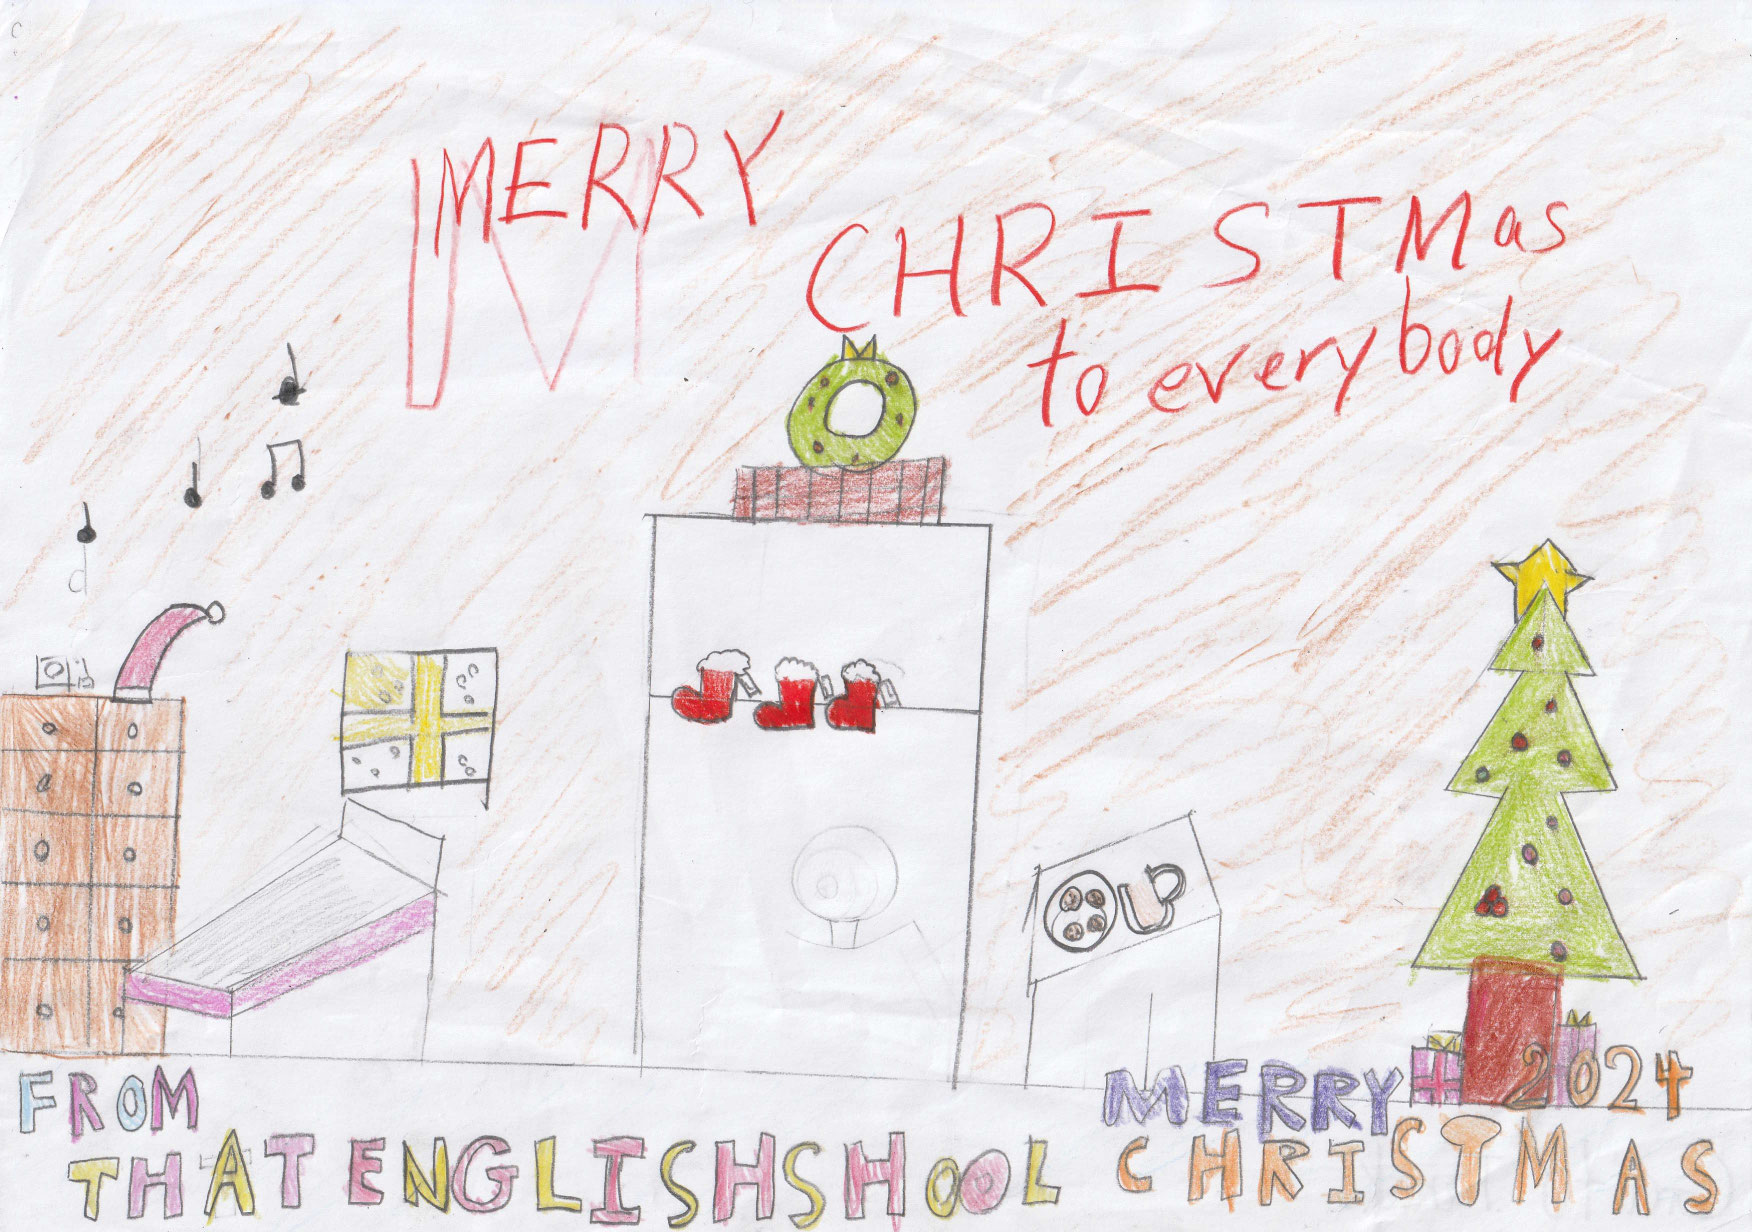 MERRY
CHRISTMas
to everybody
FROM
THAT ENGLISH SHOOL
MERRY 2024
CHRISTMAS